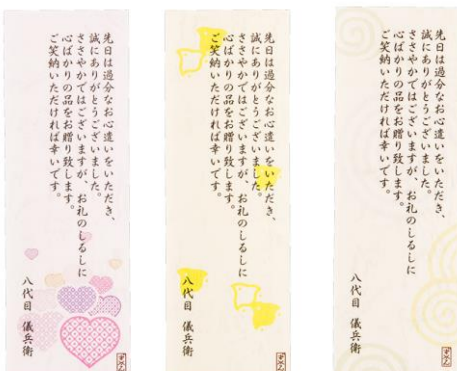 先日は過分なお心遣いをいただき、
誠にありがとうございました。
ささやかではございますが、お礼のしるしに
心ばかりの品をお贈り致します。
ご笑納いただければ幸いです。
八代目 儀兵衛
先日は過分なお心遣いをいただき、
誠にありがとうございました。
ささやかではございますが、お礼のしるしに
心ばかりの品をお贈り致します。
ご笑納いただければ幸いです。
八代目 儀兵衛
先日は過分なお心遣いをいただき、
誠にありがとうございました。
ささやかではございますが、お礼のしるしに
心ばかりの品をお贈り致します。
ご笑納いただければ幸いです。
八代目 儀兵衛